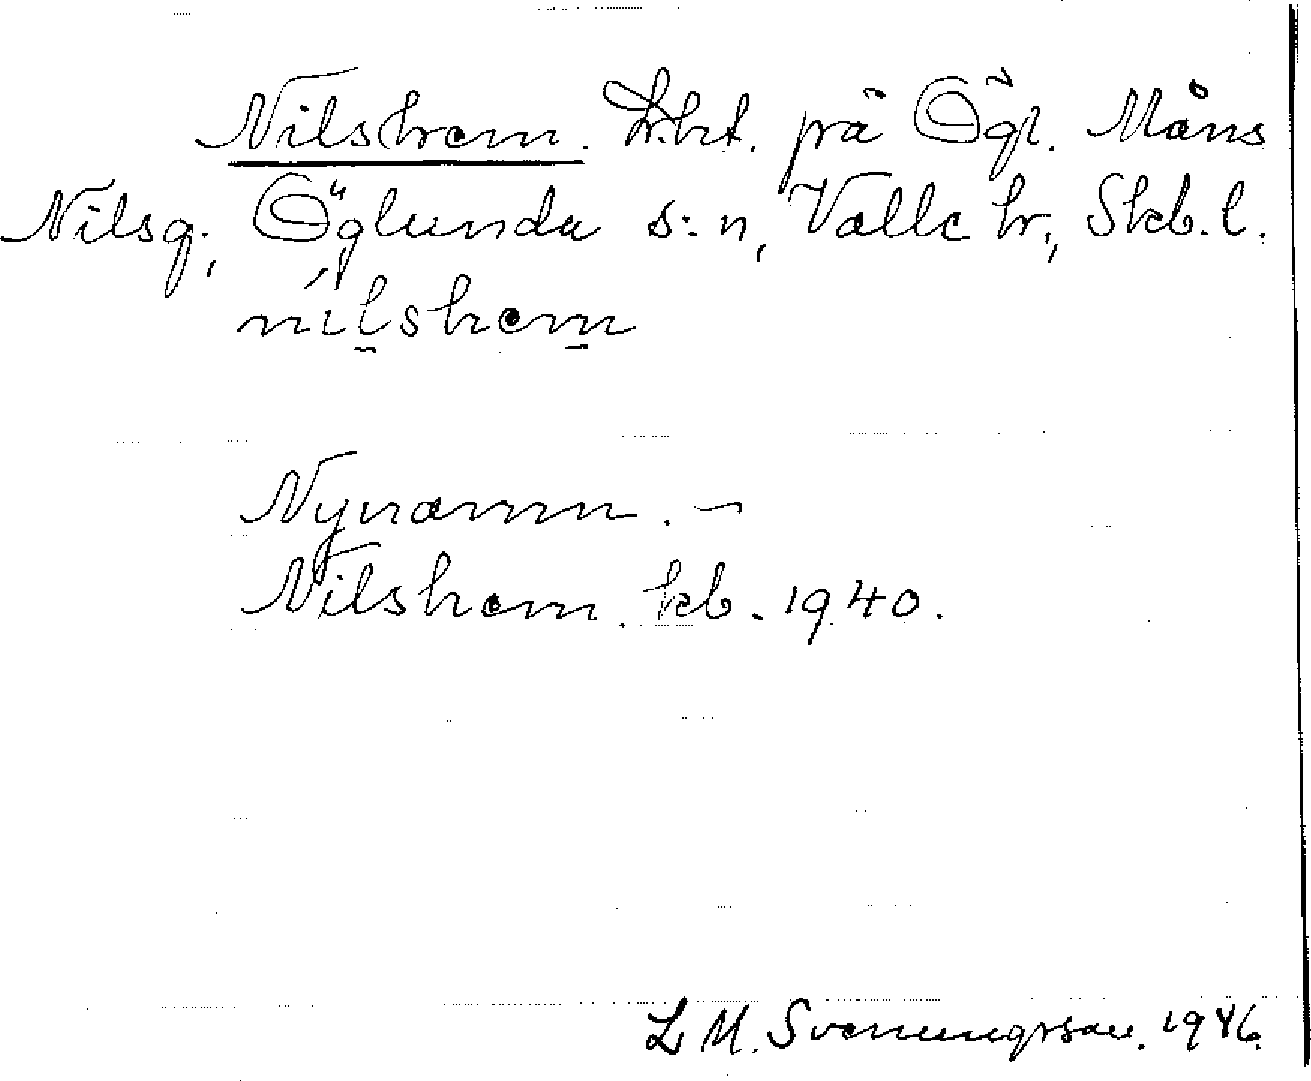 Nilshem. Lht. på Ögl. Måns
Nilsg., Öglunda s:n, Valle hr, Skb.l.
nilshem
Nynamn. –
Nilshem. kb. 1940.
L M. Svenungsson. 1946.